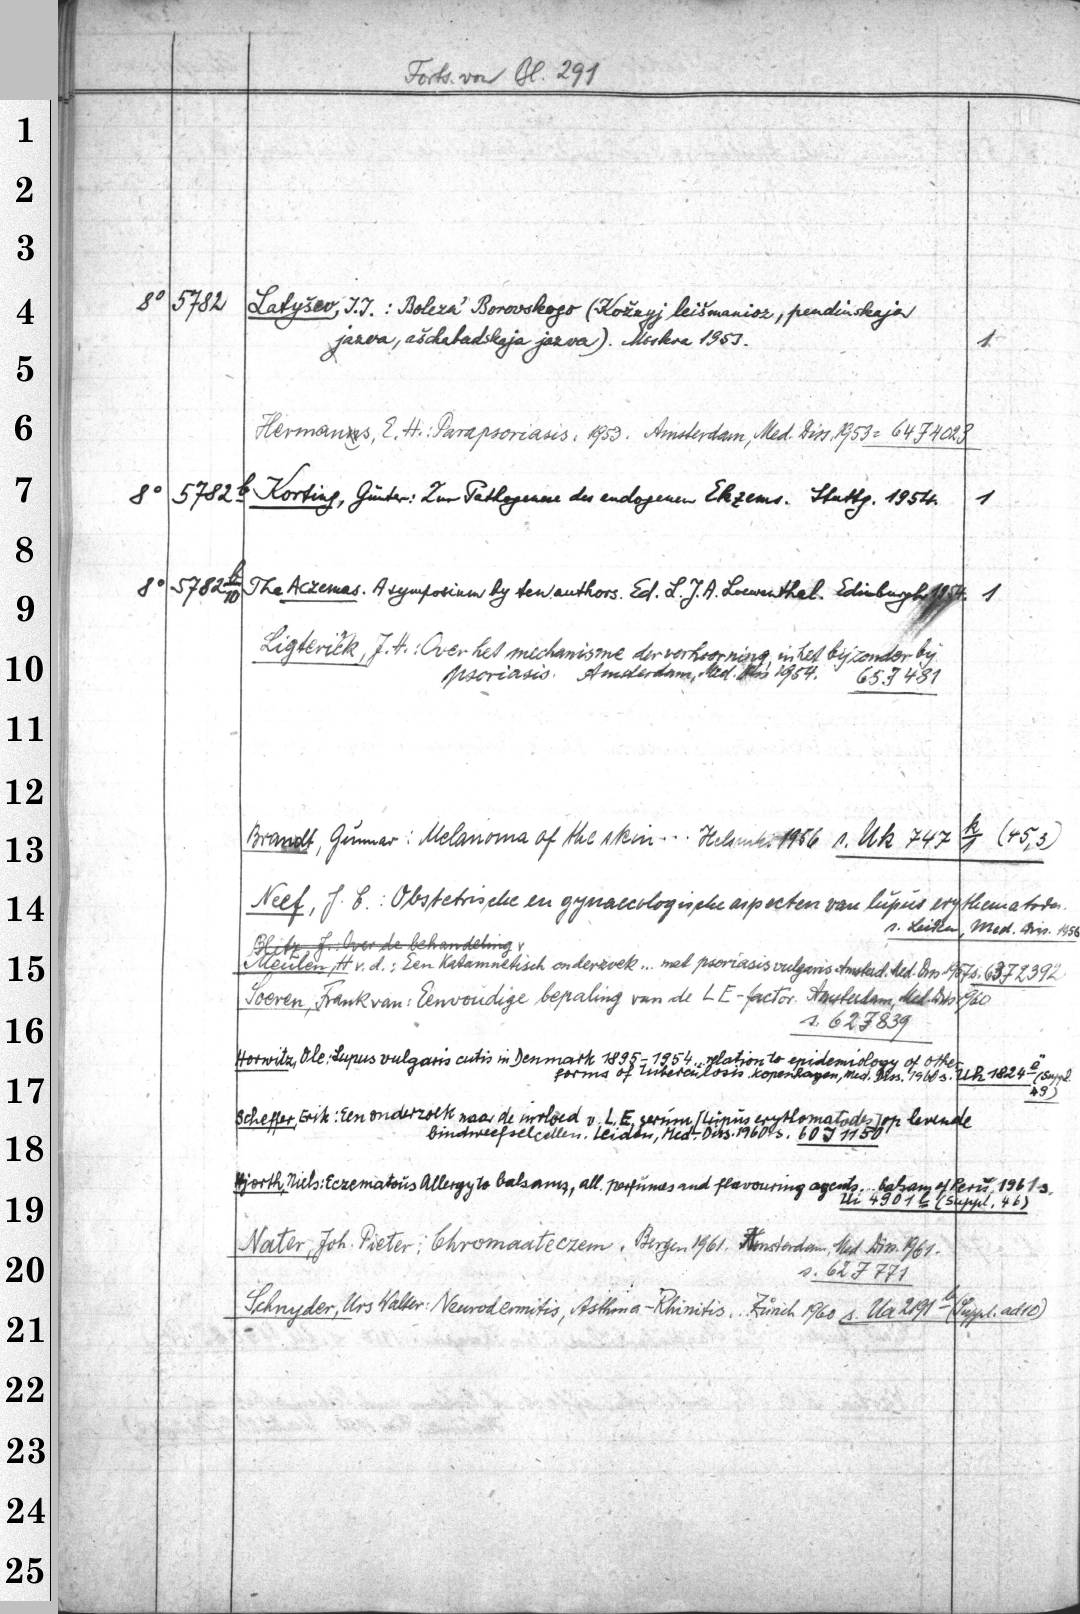 Forts. von Bl. 291
1
2
3
4
8° 5782 Latyšev, I.I.: Bolezn' Borovskogo (Kožnyj leišmanioz, pendinskaja
jazva, ašchabadskaja jazva). Moskva 1953. 1
5
6
Hermans, E. H.: Parapsoriasis. 1953. Amsterdam, Med. Diss. 1953 = 64 J 4023
7
8° 5782 b Korting, Günter: Zur Pathogenese des endogenen Ekzems. Stuttg. 1954. 1
8
8° 5782 b/10 The Aczemas. A symposium by ten authors. Ed. L. J. A. Loewenthal. Edinburgh 1954. 1
9
Ligterink, J. H.: Over het mechanisme der verhoorning, in het bijzonder bij
10
psoriasis. Amsterdam, Med. Diss 1954. 65 J 481
11
12
13
Brandt, Gunnar: Melanoma of the skin ... Helsinki 1956 s. Uk 747 k/1 (45,3)
14
Neef, J. C.: Obstetrische en gynaecologische aspecten van lupus erythematodes.
s. Leiden, Med. Diss. 1956
Blitz, J.: Over de behandeling v
15
Meulen, H v. d.: Een Katamnetisch onderzoek ... met psoriasis vulgaris. Amsterd. Med. Diss 1957 s. 63 J 2392
Soeren, Frank van: Eenvoudige bepaling van de L E-factor. Amsterdam, Med. Diss 1960
16
s. 62 J 839
Horwitz, Ole: Lupus vulgaris cutis in Denmark 1895-1954.. relation to epidemiology of other
forms of tuberculosis. Kopenhagen, Med. Diss. 1960 s. Uk 1824 a (Suppl.
49)
17
Scheffer, Erik: Een onderzoek naar de invloed v. L.E. serum [Lupus erythomatodes] op levende
bindweefselcellen. Leiden, Med. Diss. 1960 s. 60 J 1150
18
Hjorth, Niels: Eczematous Allergy to balsams, all. perfumes and flavouring agents... balsam of Peru, 1961 s.
19
Ui 4901 b (Suppl. 46)
Nater, Joh. Pieter: Chromaateczem. Bergen 1961. Amsterdam, Med. Diss. 1961.
20
s. 62 J 771
Schnyder, Urs Walter: Neurodermitis, Asthma-Rhinitis.. Zürich 1960 s. Ua 2191 b (Suppl. ad 10)
21
22
23
24
25